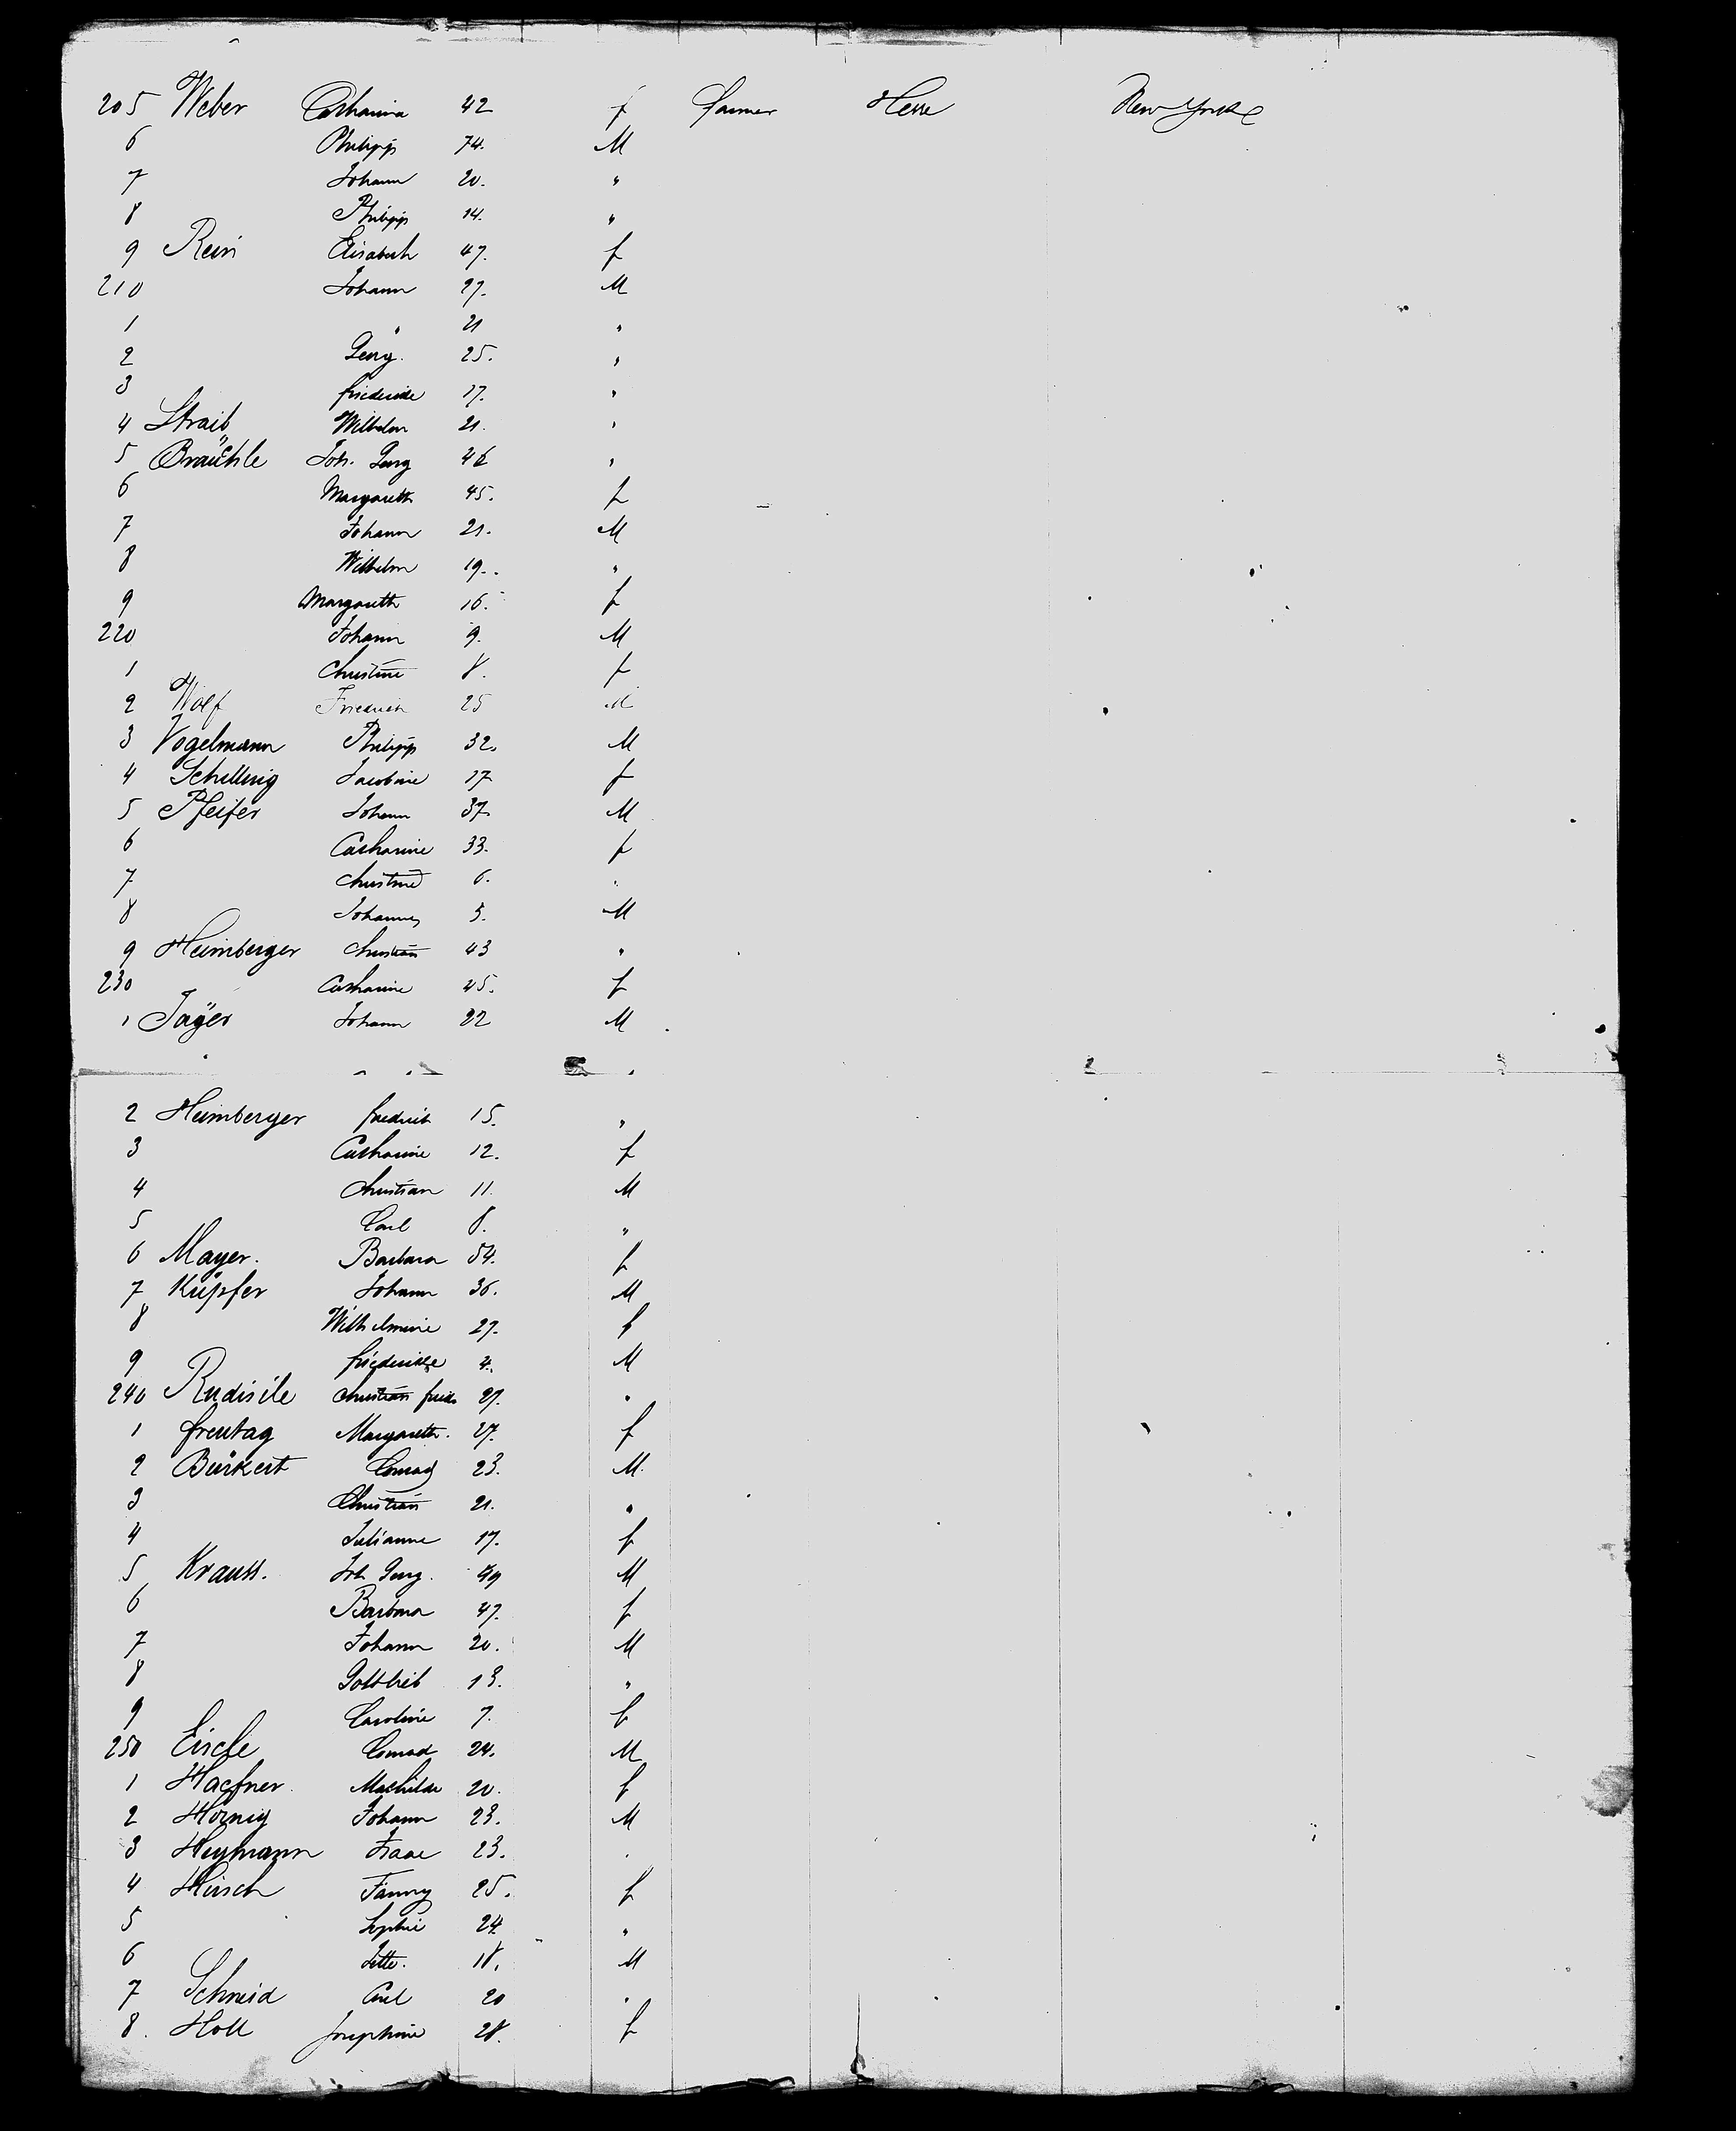 205 Weber Catharina 42 f farmer Hesse New York
6 Philipp 74. M
7 Johann 20. "
8 Philipp 14. "
9 Rein Elisabeth 47. f
210 Johann 27. M
1 " 21 "
2 Georg. 25. "
3 friedericke 17. "
4 Straib Wilhelm 21. "
5 Bräuchle Joh. Georg 46 "
6 Margareth 45. f
7 Johann 21. M
8 Wilhelm 19. "
9 Margareth 16. f
220 Johann 9. M
1 Christine 8. f
2 Wolf Friedrich 25 M
3 Vogelmann Philipp 32. M
4 Schilling Jacobine 17 f
5 Pfeifer Johann 37 M
6 Catharine 33. f
7 Christine 6. "
8 Johannes 5. M
9 Heimberger Christian 43 "
230 Catharine 45. f
1 Jäger Johann 22 M
2 Heimberger friedrich 15. "
3 Catharine 12. f
4 Christian 11. M
5 Carl 8. "
6 Mayer. Barbara 54. f
7 Küpfer Johann 36. M
8 Wilhelmine 27. f
9 friedericke 4. M
240 Rudisile Christian friedr 27. "
1 freutag Margareth. 27. f
2 Bürkert Conrad 23. M.
3 Christian 21. "
4 Julianne 17. f
5 Krauss. Joh Georg. 49 M
6 Barbara 47. f
7 Johann 20. M
8 Gottlieb 13. "
9 Caroline 7. f
250 Eisele Conrad 24. M
1 Haefner Mathilde 20. f
2 Hornig Johann 23. M
3 Heymann Isaac 23. "
4 Hirsch Fanny 25. f
5 Sophie 24. "
6 Jette. 18. M
7 Schmid Carl 20 "
8. Holl Josephine 28. f